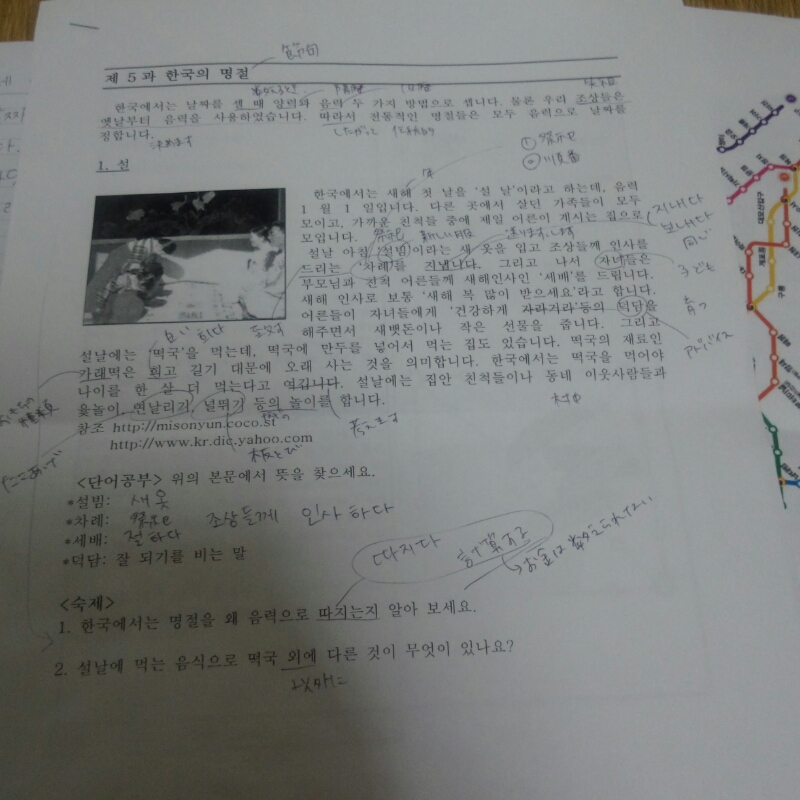 節句
제 5 과 한국의 명절
한국에서는 날짜를 셀 때 양력과 음력 두 가지 방법으로 셉니다. 물론 우리 조상들은
옛날부터 음력을 사용하였습니다. 따라서 전통적인 명절들은 모두 음력으로 날짜를
정합니다.
決めます
したがって 伝統的
① 祭祀
② 順番
1. 설
한국에서는 새해 첫 날을 '설 날'이라고 하는데, 음력
1 월 1 일입니다. 다른 곳에서 살던 가족들이 모두
모이고, 가까운 친척들 중에 제일 어른이 계시는 집으로
모입니다.
祭祀 新しい服 送ります
설날 아침 '설빔'이라는 새 옷을 입고 조상들께 인사를
드리는 '차례'를 지냅니다. 그리고 나서 자녀들은
부모님과 친척 어른들께 새해인사인 '세배'를 드립니다.
새해 인사로 보통 '새해 복 많이 받으세요'라고 합니다.
어른들이 자녀들에게 '건강하게 자라거라'등의 덕담을
해주면서 새뱃돈이나 작은 선물을 줍니다. 그리고
설날에는 '떡국'을 먹는데, 떡국에 만두를 넣어서 먹는 집도 있습니다. 떡국의 재료인
가래떡은 희고 길기 대문에 오래 사는 것을 의미합니다. 한국에서는 떡국을 먹어야
나이를 한 살 더 먹는다고 여깁니다. 설날에는 집안 친척들이나 동네 이웃사람들과
윷놀이, 연날리기, 널뛰기 등의 놀이를 합니다.
지내다
보내다
同じ
子ども
育つ
アドバイス
白い 희다
考える
板とび
たこあげ
참조 http://misonyun.coco.st
http://www.kr.dic.yahoo.com
<단어공부> 위의 본문에서 뜻을 찾으세요.
*설빔: 새 옷
*차례: 祭祀 조상들께 인사하다
*세배: 절하다
*덕담: 잘 되기를 비는 말
따지다 計算する
<숙제>
1. 한국에서는 명절을 왜 음력으로 따지는지 알아 보세요.
2. 설날에 먹는 음식으로 떡국 외에 다른 것이 무엇이 있나요?
以外に